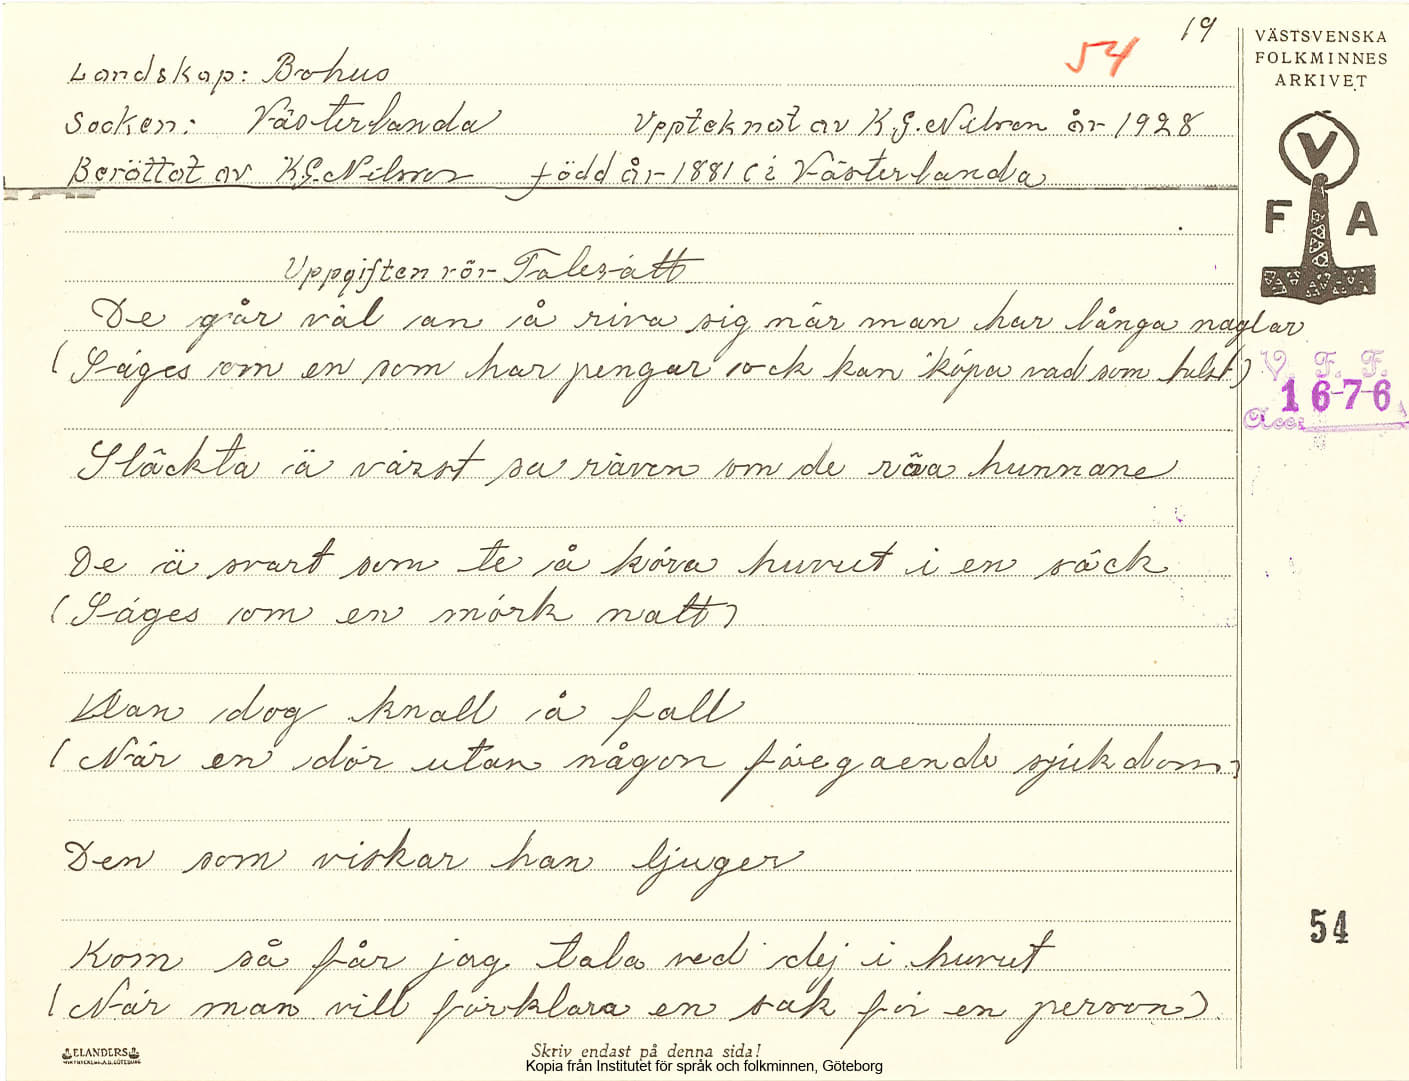 19
54
VÄSTSVENSKA
FOLKMINNES
ARKIVET
Landskap: Bohus
Socken: Västerlanda Uppteknat av K.G. Nilson år 1928
Berättat av K.G. Nilson född år 1881 i Västerlanda
V
F A
Uppgiften rör Talesätt
De går väl an å riva sig när man har långa naglar
(Säges om en som har pengar ock kan köpa vad som hälst)
V. F. F.
1676
Acc:
Släckta ä värst sa räven om de röa hunnane
De ä svart som te å köra huvut i en säck
(Säges om en mörk natt)
Han dog knall å fall
(När en dör utan någon föregaende sjukdom)
Den som viskar han ljuger
54
Kom så får jag tala ved dej i huvut
(När man vill förklara en sak för en person).
ELANDERS
Skriv endast på denna sida!
Kopia från Institutet för språk och folkminnen, Göteborg